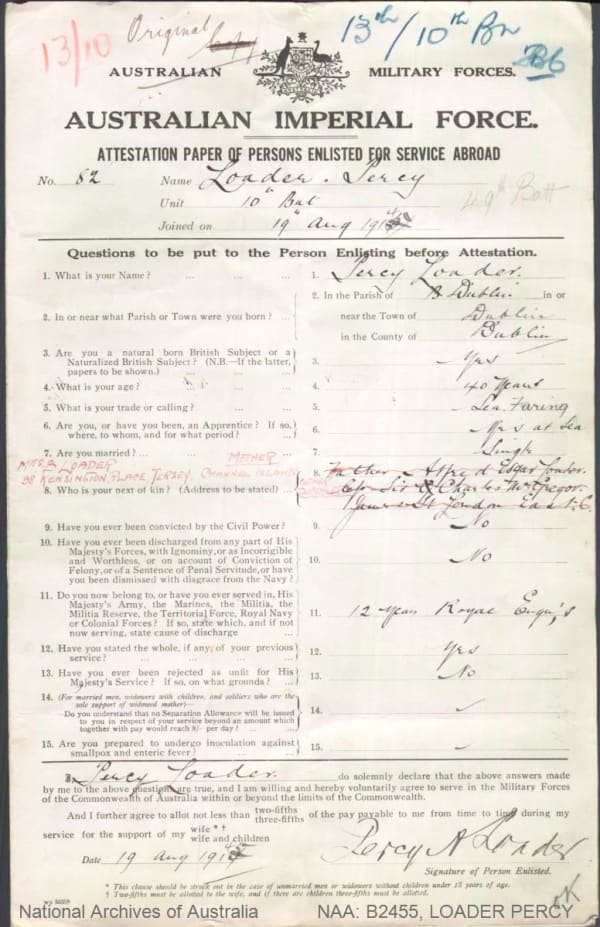 13/10
Original
Copy
13th/10th Bn
AUSTRALIAN MILITARY FORCES.
AUSTRALIAN IMPERIAL FORCE.
ATTESTATION PAPER OF PERSONS ENLISTED FOR SERVICE ABROAD
No. 82 Name Loader. Percy
Unit 10th Bat
49th Batt
Joined on 19th Aug 1914
Questions to be put to the Person Enlisting before Attestation.
1. What is your Name? ... ... ... 1. Percy Loader.
2. In or near what Parish or Town were you born? ... 2. In the Parish of Dublin in or
near the Town of Dublin
in the County of Dublin
3. Are you a natural born British Subject or a
Naturalized British Subject? (N.B.—If the latter,
papers to be shown.) ... ... 3. Yes
4. What is your age? ... ... ... 4. 40 Years
5. What is your trade or calling? ... ... 5. Sea Faring
6. Are you, or have you been, an Apprentice? If so,
where, to whom, and for what period? ... 6. Yes at Sea
7. Are you married? ... ... ... 7. Single
MRS. B LOADER MOTHER
38 KENSINGTON PLACE JERSEY CHANNEL ISLANDS
8. Who is your next of kin? (Address to be stated) ... 8. Father Alfred Edgar Loader.
C/o Sir Charles McGregor.
James St London
9. Have you ever been convicted by the Civil Power? 9. No
10. Have you ever been discharged from any part of His
Majesty's Forces, with Ignominy, or as Incorrigible
and Worthless, or on account of Conviction of
Felony, or of a Sentence of Penal Servitude, or have
you been dismissed with disgrace from the Navy? 10. No
11. Do you now belong to, or have you ever served in, His
Majesty's Army, the Marines, the Militia, the
Militia Reserve, the Territorial Force, Royal Navy
or Colonial Forces? If so, state which, and if not
now serving, state cause of discharge ... 11. 12 Years Royal Engin's
12. Have you stated the whole, if any, of your previous
service? ... ... ... ... 12. Yes
13. Have you ever been rejected as unfit for His
Majesty's Service? If so, on what grounds? ... 13. No
14. (For married men, widowers with children, and soldiers who are the
sole support of widowed mother)—
Do you understand that no Separation Allowance will be issued
to you in respect of your service beyond an amount which
together with pay would reach 8/- per day? ... ... 14. ✓
15. Are you prepared to undergo inoculation against
smallpox and enteric fever? ... ... 15. ✓
I, Percy Loader. do solemnly declare that the above answers made
by me to the above questions are true, and I am willing and hereby voluntarily agree to serve in the Military Forces
of the Commonwealth of Australia within or beyond the limits of the Commonwealth.
And I further agree to allot not less than two-fifths three-fifths of the pay payable to me from time to time during my
service for the support of my wife *† wife and children
Date 19 Aug 1914
Percy A Loader
Signature of Person Enlisted.
* This clause should be struck out in the case of unmarried men or widowers without children under 18 years of age.
† Two-fifths must be allotted to the wife, and if there are children three-fifths must be allotted.
National Archives of Australia NAA: B2455, LOADER PERCY